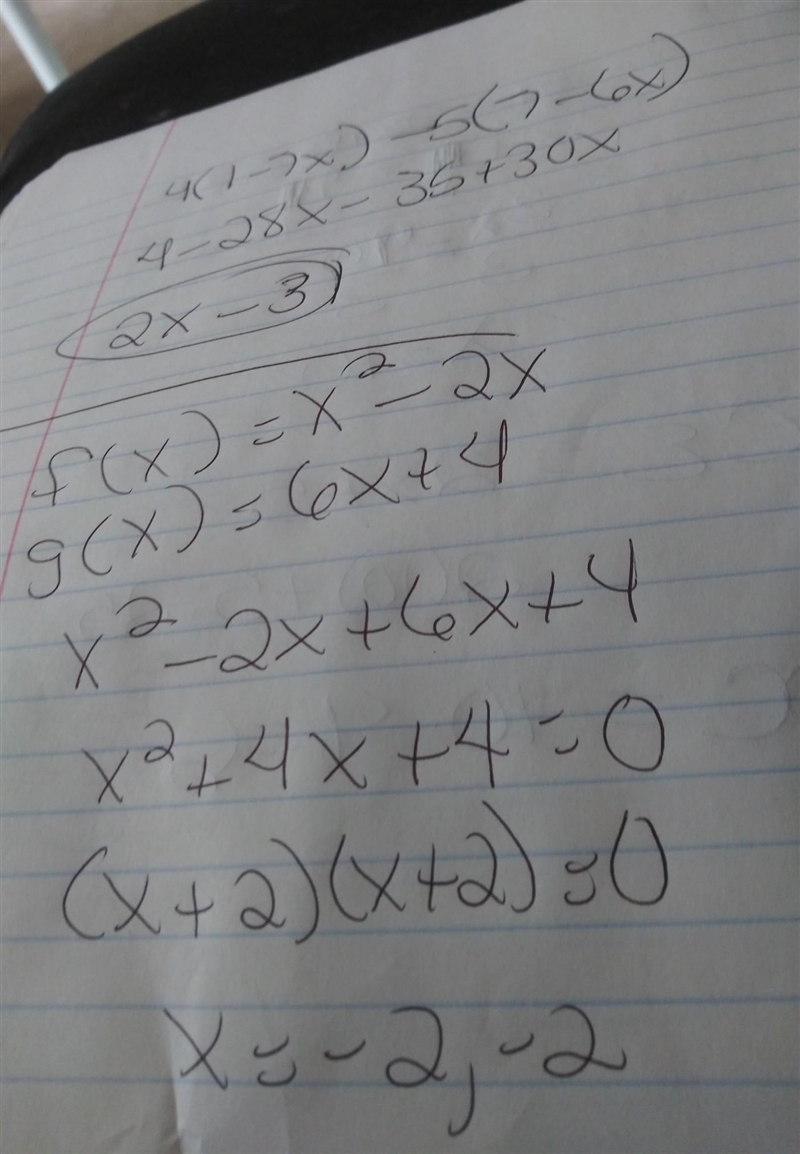 4(1-7x) -5(7-6x)
4-28x-35+30x
2x-31
f(x) = x²-2x
g(x) = 6x+4
x²-2x+6x+4
x²+4x+4=0
(x+2)(x+2)=0
x=-2,-2